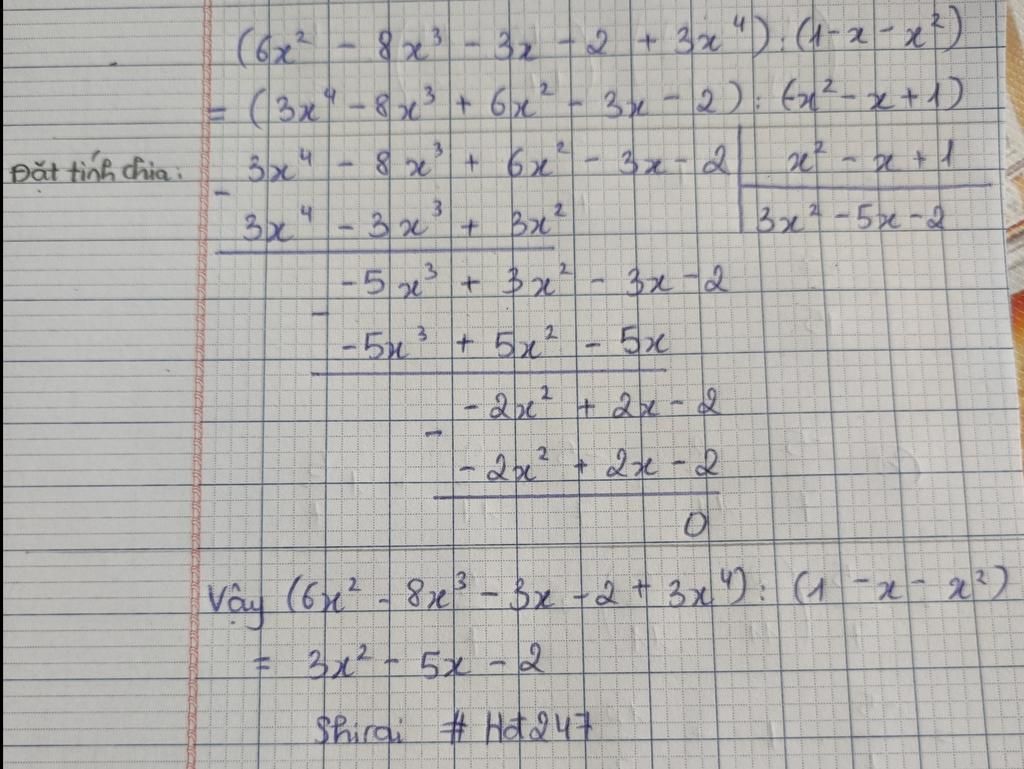 (6x² - 8x³ - 3x - 2 + 3x⁴) : (1 - x - x²)
= (3x⁴ - 8x³ + 6x² - 3x - 2) : (x² - x + 1)
Đặt tính chia: 3x⁴ - 8x³ + 6x² - 3x - 2 | x² - x + 1
- 3x⁴ - 3x³ + 3x² | 3x² - 5x - 2
-5x³ + 3x² - 3x - 2
- -5x³ + 5x² - 5x
-2x² + 2x - 2
- -2x² + 2x - 2
0
Vậy (6x² - 8x³ - 3x - 2 + 3x⁴) : (1 - x - x²)
= 3x² - 5x - 2
Shirai # Hd247